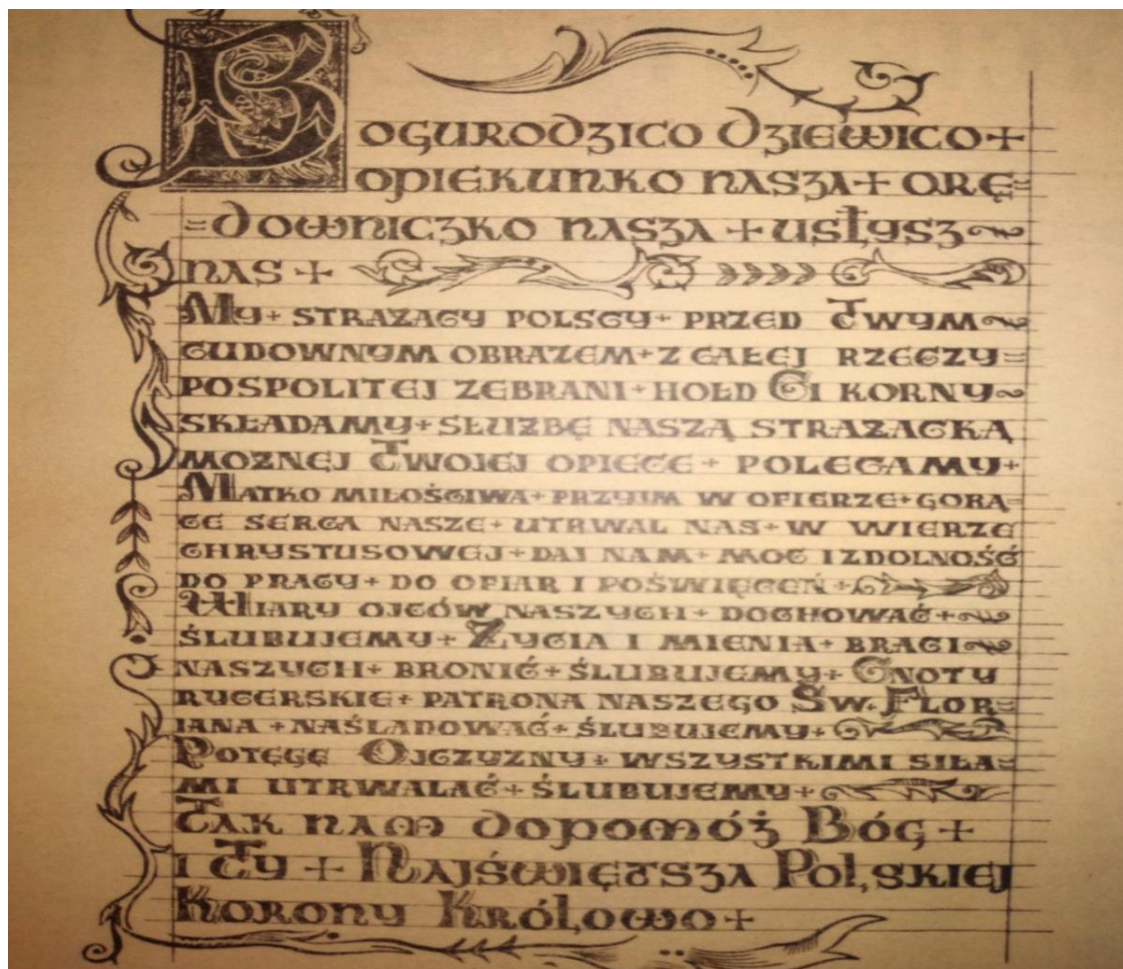 BOGURODZICO DZIEWICO+
OPIEKUNKO NASZA+ ORĘ=
=DOWNICZKO NASZA +USŁYSZ
NAS +
My+ STRAŻACY POLSCY+ PRZED TWYM
CUDOWNYM OBRAZEM+Z CAŁEJ RZECZY=
POSPOLITEJ ZEBRANI+HOŁD CI KORNY
SKŁADAMY+SŁUŻBĘ NASZĄ STRAŻACKĄ
MOŻNEJ TWOJEJ OPIECE + POLECAMY+
MATKO MIŁOŚCIWA+PRZYJM W OFIERZE+GORĄ=
CE SERCA NASZE+UTRWAL NAS+W WIERZE
CHRYSTUSOWEJ+DAJ NAM+ MOC I ZDOLNOŚĆ
DO PRACY+DO OFIAR I POŚWIĘCEŃ+
WIARY OJCÓW NASZYCH+ DOCHOWAĆ+
ŚLUBUJEMY+ ŻYCIA I MIENIA+BRACI
NASZYCH+BRONIĆ+ŚLUBUJEMY+ CNOTY
RYCERSKIE+PATRONA NASZEGO ŚW. FLOR=
IANA +NAŚLADOWAĆ+ŚLUBUJEMY+
POTĘGĘ OJCZYZNY+ WSZYSTKIMI SIŁA=
MI UTRWALAĆ+ŚLUBUJEMY+
TAK NAM DOPOMÓŻ BÓG +
I TY + NAJŚWIĘTSZA POLSKIEJ
KORONY KRÓLOWO+